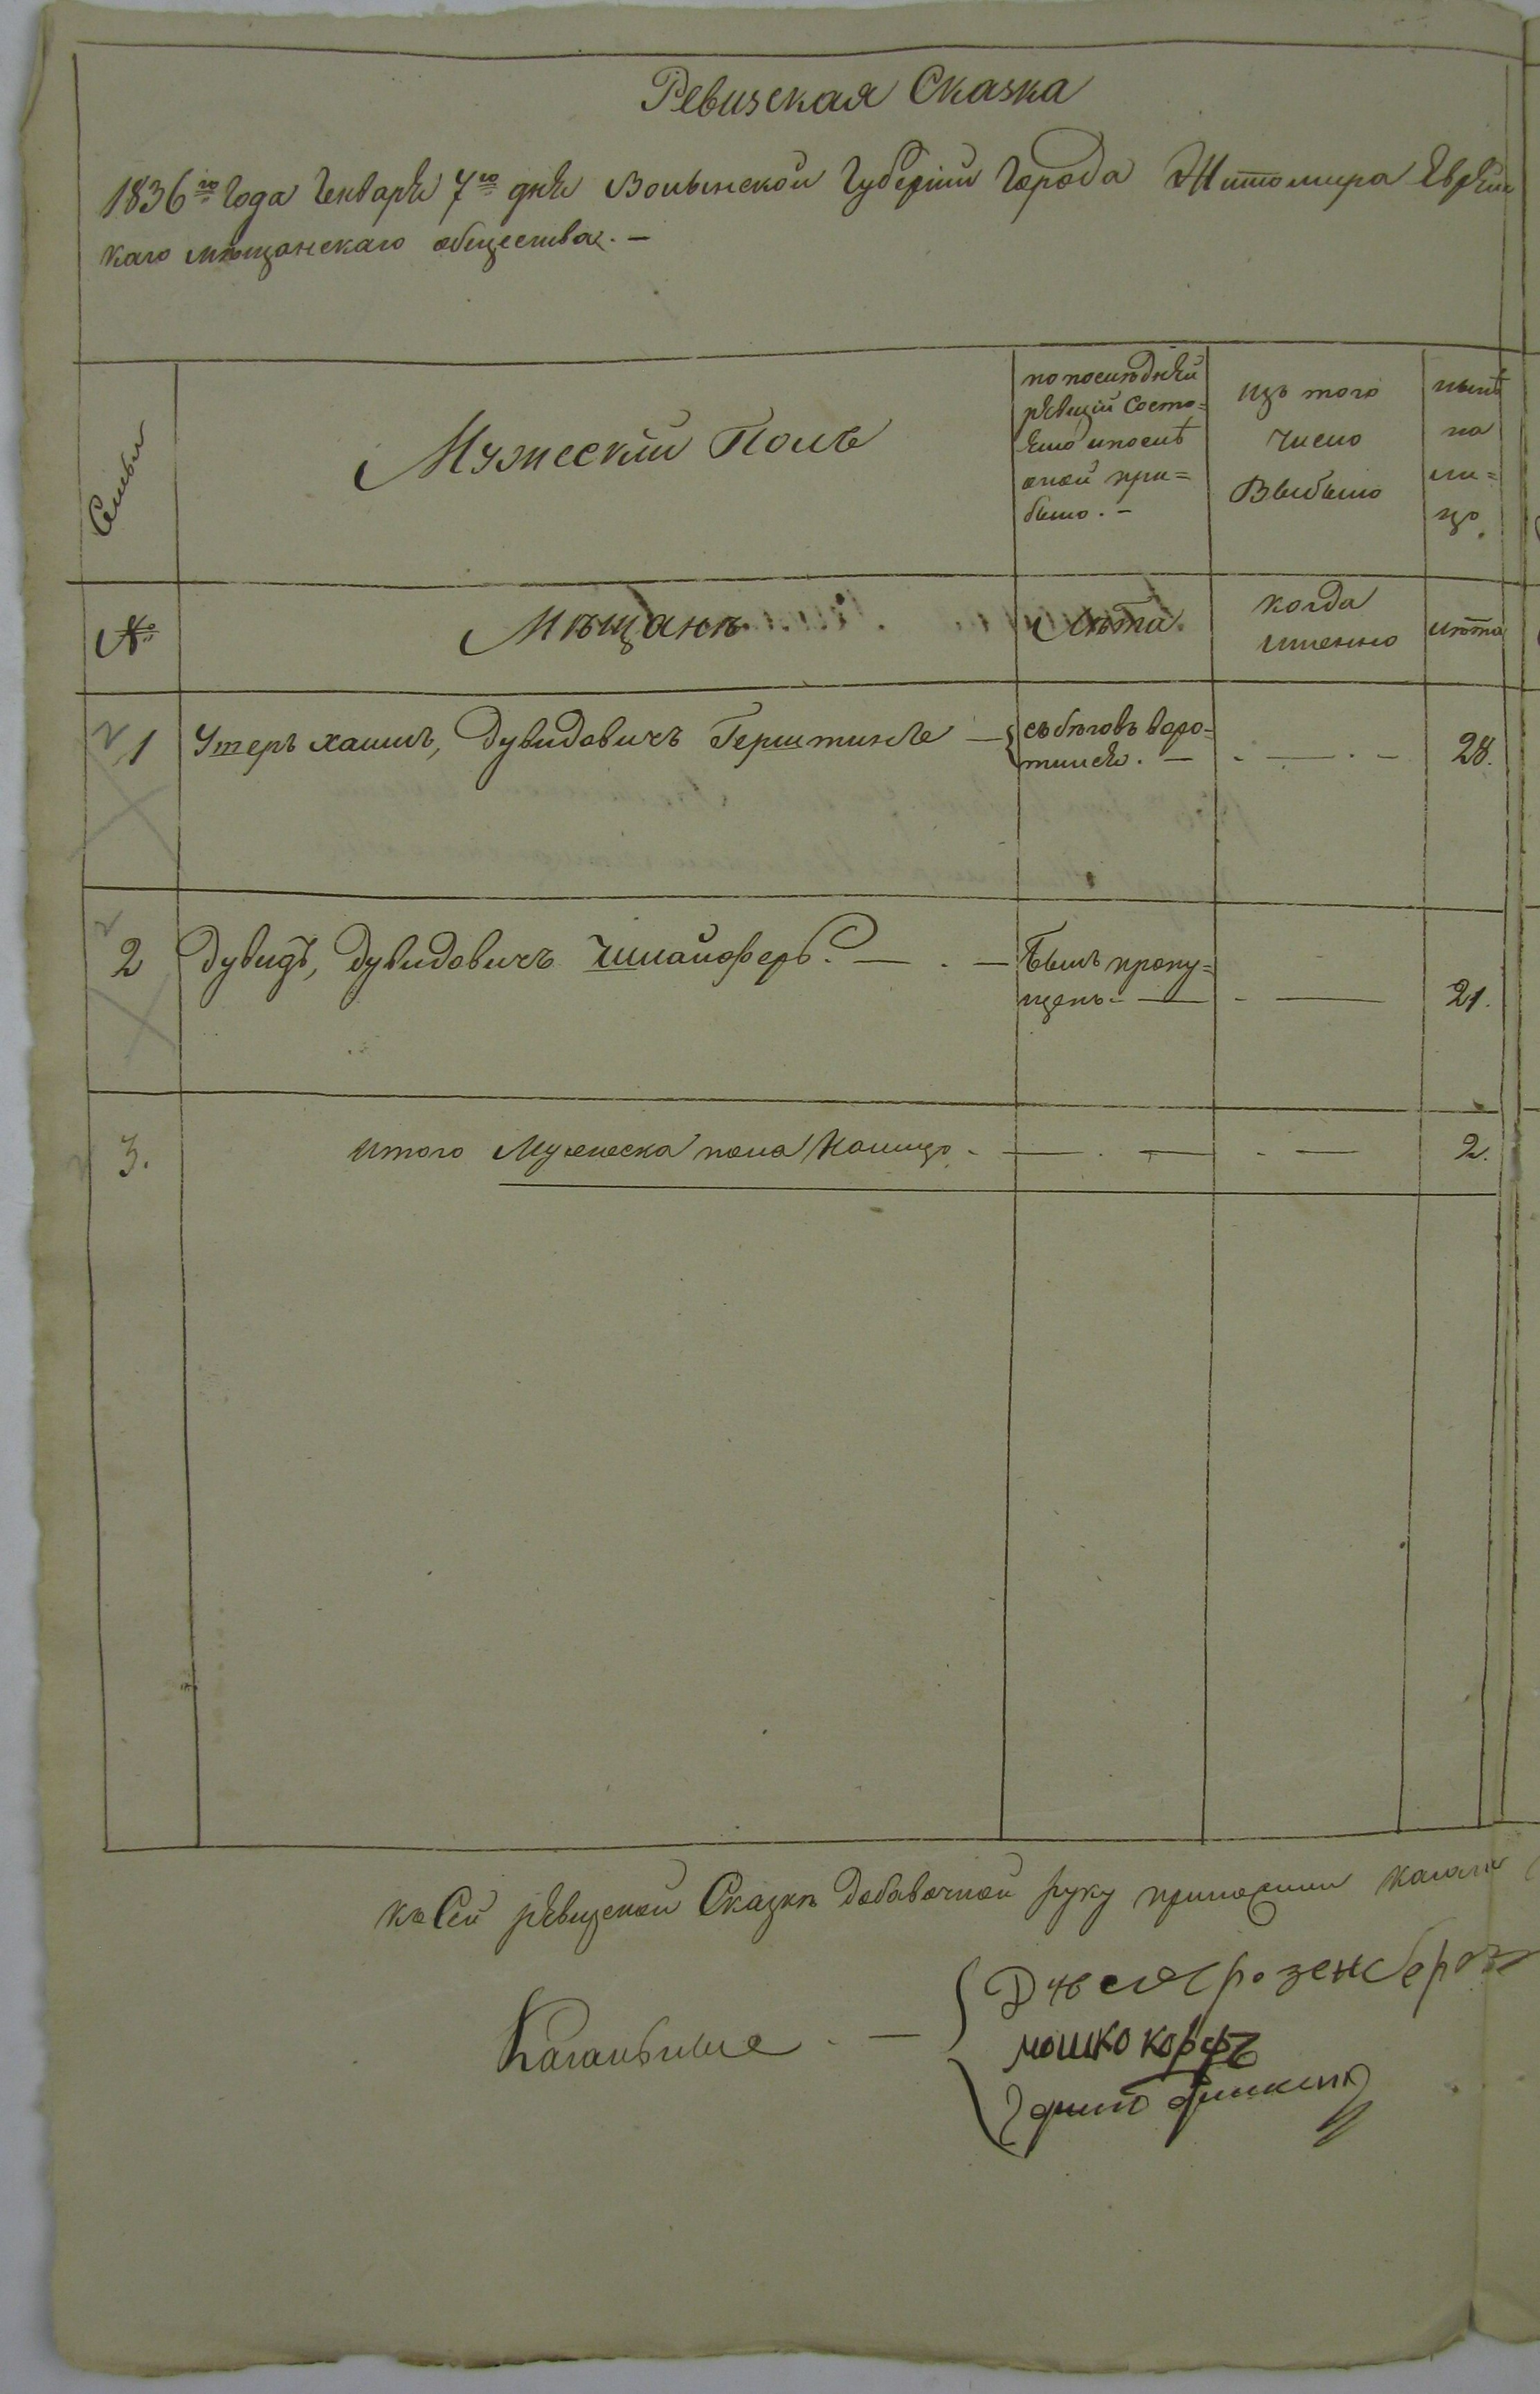 Ревизская Сказка
1836го Года Генваря 7го дня Волынской Губернии Города Житомира Еврейс
каго мѣщанскаго общества. —
Семьи
Мужеский Полъ
по последней
ревизии состо=
яло и послѣ
оной при=
было. —
Изъ того
число
Выбыло
нынѣ
на
ли=
цо.
№
Мѣщанѣ
Лѣта.
когда
именно
лѣта
1 Утеръ хаимъ, Дувидовичъ Герштикле — съ бѣговъ воро=
тился. — - — . — 28.
2 Дувидъ, Дувидовичъ Шлайферъ. — . — Былъ пропу=
щенъ. — - — 21.
3. итого Мужеска пола Налицо. — . — - — 2.
къ Сей ревизской Сказкѣ добавочной руку приложили
Кагальные . —
розенбергъ
мошко корфъ